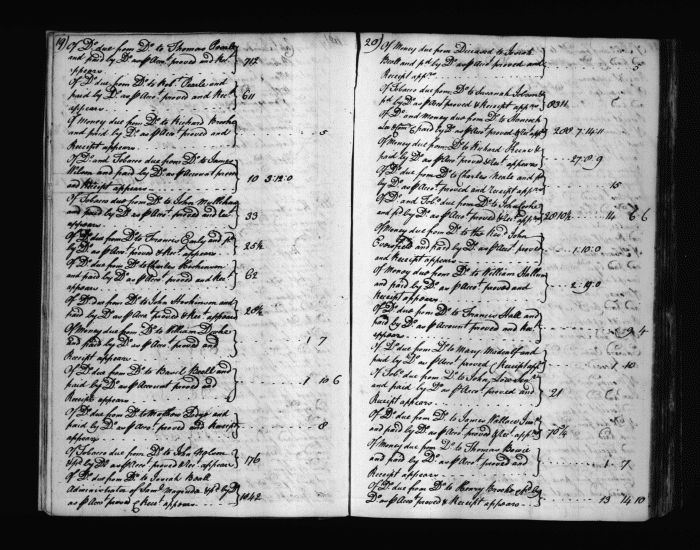 19)
Of D.o due from D.o to Thomas
and paid by D.o as p Acc.t proved and Rec.t
appears 712
Of D.o due from D.o to Rob.t Peale and
paid by D.o as p Acc.t proved and Rec.t
appears 611
Of Money due from D.o to Richard Brooke
and paid by D.o as p Acc.t proved and
Receipt appears 5
Of D.o and Tobacco due from D.o to James
Wilson and paid by D.o as p Account proved
and Receipt appears 10 3:12:0
Of Tobacco due from D.o to John
and paid by D.o as p Acc.t proved and
appears 33
Of D.o due from D.o to Francis and p.d
by D.o as p Acc.t proved & Rec.t appears
Of D.o due from D.o to Charles
and paid by D.o as p Acc.t proved and Rec.t
appears 62
Of D.o due from D.o to John and
paid by D.o as p Acc.t proved & Rec.t appears
Of Money due from D.o to William
and paid by D.o as p Acc.t proved and
Receipt appears 1 7
Of D.o due from D.o to Basil Beall and
paid by D.o as p Account proved and
Receipt appears 1 10 6
Of D.o due from D.o to Matthew and
paid by D.o as p Acc.t proved and Receipt
appears 8
Of Tobacco due from D.o to John
& p.d by D.o as p Acc.t proved & Rec.t appears 176
Of D.o due from D.o to Josiah Beall
Administrator of Sam.l Magruder & p.d by D.o
as p Acc.t proved & Rec.t appears 1042
20)
Of Money due from Deceased to Josiah
Beall and p.d by D.o as p Acc.t proved and
Receipt app.rs
Of Tobacco due from D.o to Susannah
p.d by D.o as p Acc.t proved & Receipt app.rs
Of D.o and Money due from D.o to
paid by D.o as p Acc.t proved & Rec.t app.rs 208 7:14:11
Of Money due from D.o to Richard and
paid by D.o as p Acc.t proved & Rec.t appears 27:8:9
Of D.o due from D.o to Charles Neale and p.d
by D.o as p Acc.t proved and receipt app.rs 15
Of D.o and Tob.o due from D.o to John Cooke
and p.d by D.o as p Acc.t proved & Rec.t app.rs 14 6 6
Of Money due from D.o to the Rev.d John
Eversfield and paid by D.o as p Acc.t proved
and Receipt appears 1:10:0
Of Money due from D.o to William
and paid by D.o as p Acc.t proved and
Receipt appears 2:19:0
Of D.o due from D.o to Francis Hall and
paid by D.o as p Account proved and Rec.t
appears 9 4
Of D.o due from D.o to Mary and
paid by D.o as p Acc.t proved & Receipt app.rs 1 10
Of Tob.o due from D.o to John
and paid by D.o as p Acc.t proved and
Receipt appears 21
Of D.o due from D.o to James Wallace Jun.r
and paid by D.o as p Acc.t proved & Rec.t app.rs
Of Money due from D.o to Thomas
and paid by D.o as p Acc.t proved and
Receipt appears 1 7
Of D.o due from D.o to Henry Brooke & p.d by
D.o as p Acc.t proved & Receipt appears 13 14 10